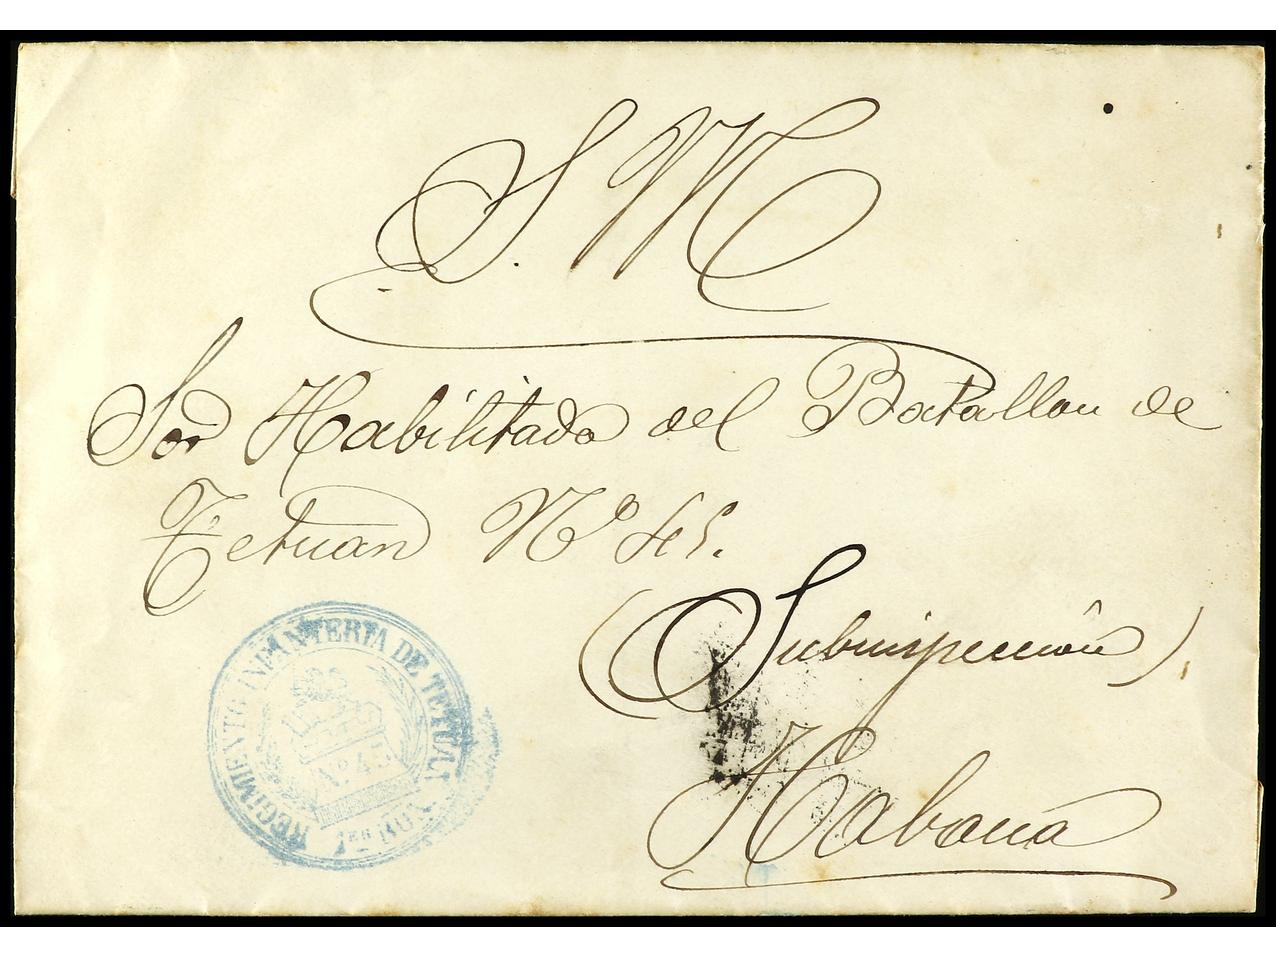 S. M
Sor Habilitado del Batallon de
Tetuan Nº 45.
(Subinspeccion)
Habana
REGIMIENTO INFANTERIA DE TETUAN
Nº 45
1ER